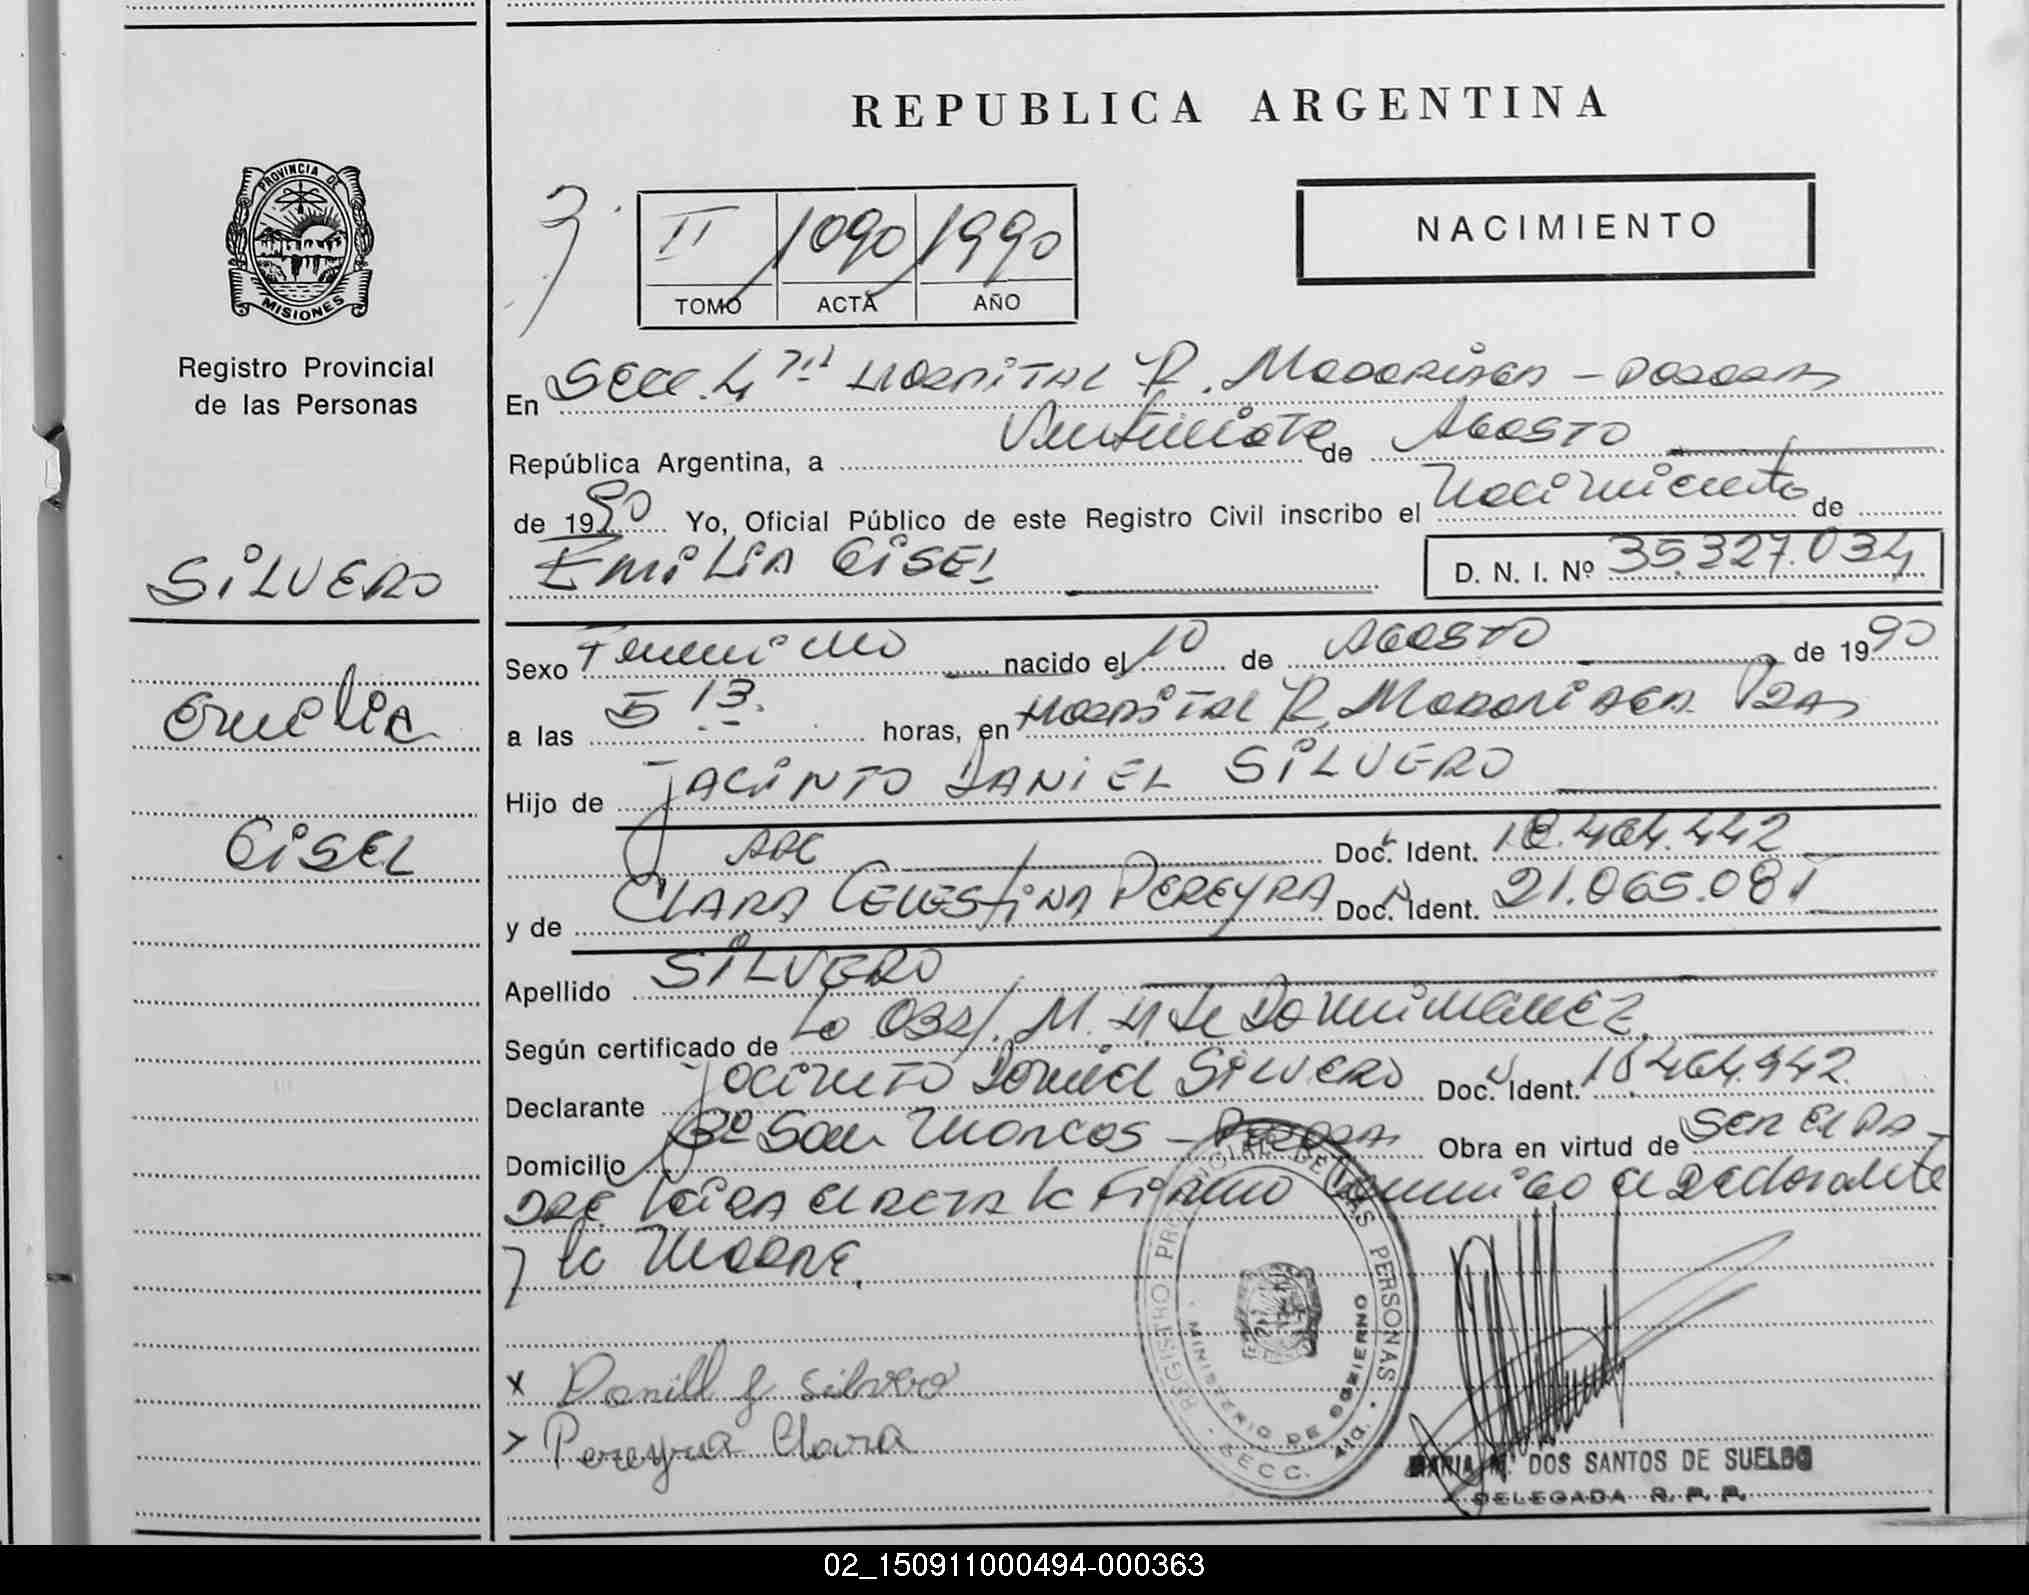 REPUBLICA ARGENTINA
PROVINCIA DE MISIONES
Registro Provincial
de las Personas
SILVERO
Emilia
GISEL
II 1090 1990
TOMO ACTA AÑO
NACIMIENTO
En SECC. 4ta HOSPITAL R. MADARIAGA - POSADAS
República Argentina, a Veintisiete de AGOSTO
de 1990 Yo, Oficial Público de este Registro Civil inscribo el Nacimiento de
EMILIA GISEL D. N. I. Nº 35.327.034
Sexo Femenino nacido el 10 de AGOSTO de 1990
a las 5 13. horas, en HOSPITAL R. MADARIAGA Pdas
Hijo de JACINTO DANIEL SILVERO
ARG Doc. Ident. 18.464.442
y de CLARA CELESTINA PEREYRA Doc. Ident. 21.065.081
Apellido SILVERO
Según certificado de La OBST. M. de
Declarante Jacinto Daniel SILVERO Doc. Ident. 18.464.442
Domicilio Bº San Marcos - POSADAS Obra en virtud de SER EL PA-
DRE leída el ACTA la Firman Conmigo el Declarante
y la MADRE.
x Daniel J Silvero
> Pereyra Clara
REGISTRO PROVINCIAL DE LAS PERSONAS
MINISTERIO DE GOBIERNO
SECC. 4ta.
MARIA M. DOS SANTOS DE SUELDO
DELEGADA R. P. P.
02_150911000494-000363